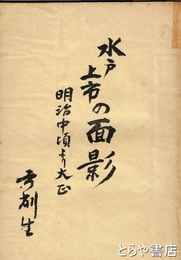 水戸
上市の面影
明治中頃より大正
生
とらや書店